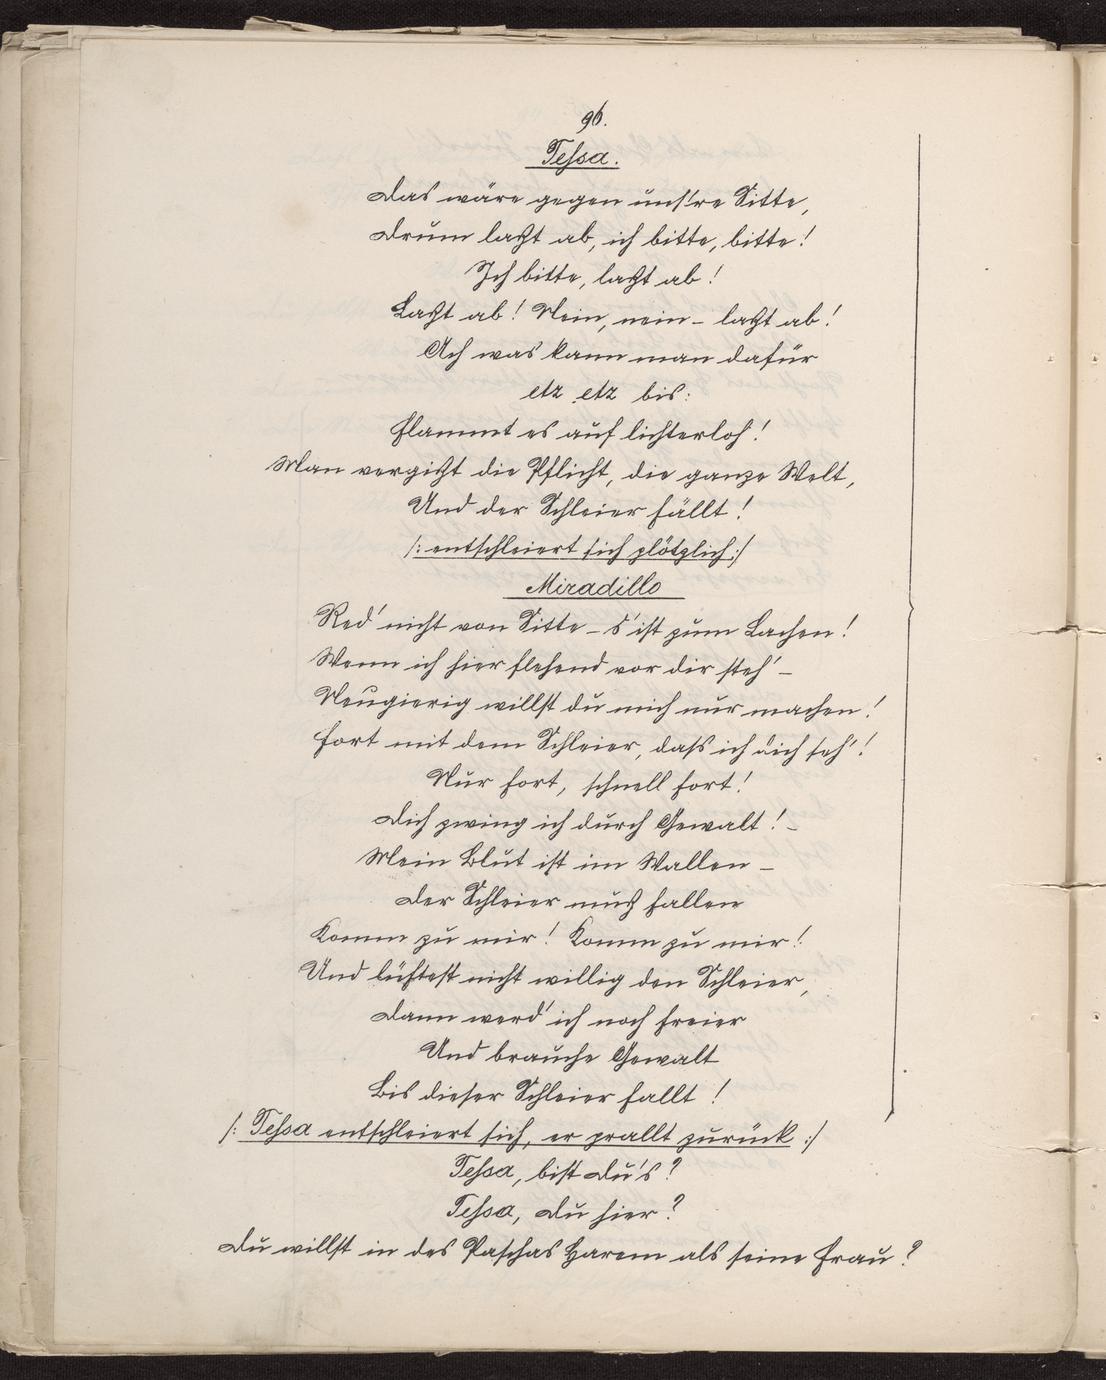 96.
Tessa.
Das wäre gegen uns're Sitte,
Drum laßt ab, ich bitte, bitte!
Ich bitte, laßt ab!
Laßt ab! Nein, nein – laßt ab!
Ach was kann man dafür
etz etz bis:
Flammt es auf lichterloh!
Man vergißt die Pflicht, die ganze Welt,
Und der Schleier fällt!
/: entschleiert sich plötzlich :/
Miradillo
Red' nicht von Sitte – s'ist zum Lachen!
Wenn ich hier flehend vor dir steh' –
Neugierig willst du mich nur machen!
Fort mit dem Schleier, dass ich dich seh'!
Nur fort, schnell fort!
Dich zwing ich durch Gewalt! –
Mein Blut ist im Wallen –
Der Schleier muß fallen
Komm zu mir! Komm zu mir!
Und lüftest nicht willig den Schleier,
Dann werd' ich noch freier
Und brauche Gewalt
Bis dieser Schleier fallt!
/: Tessa entschleiert sich, er prallt zurück :/
Tessa, bist Du's?
Tessa, Du hier?
Du willst in des Paschas Harem als seine Frau?